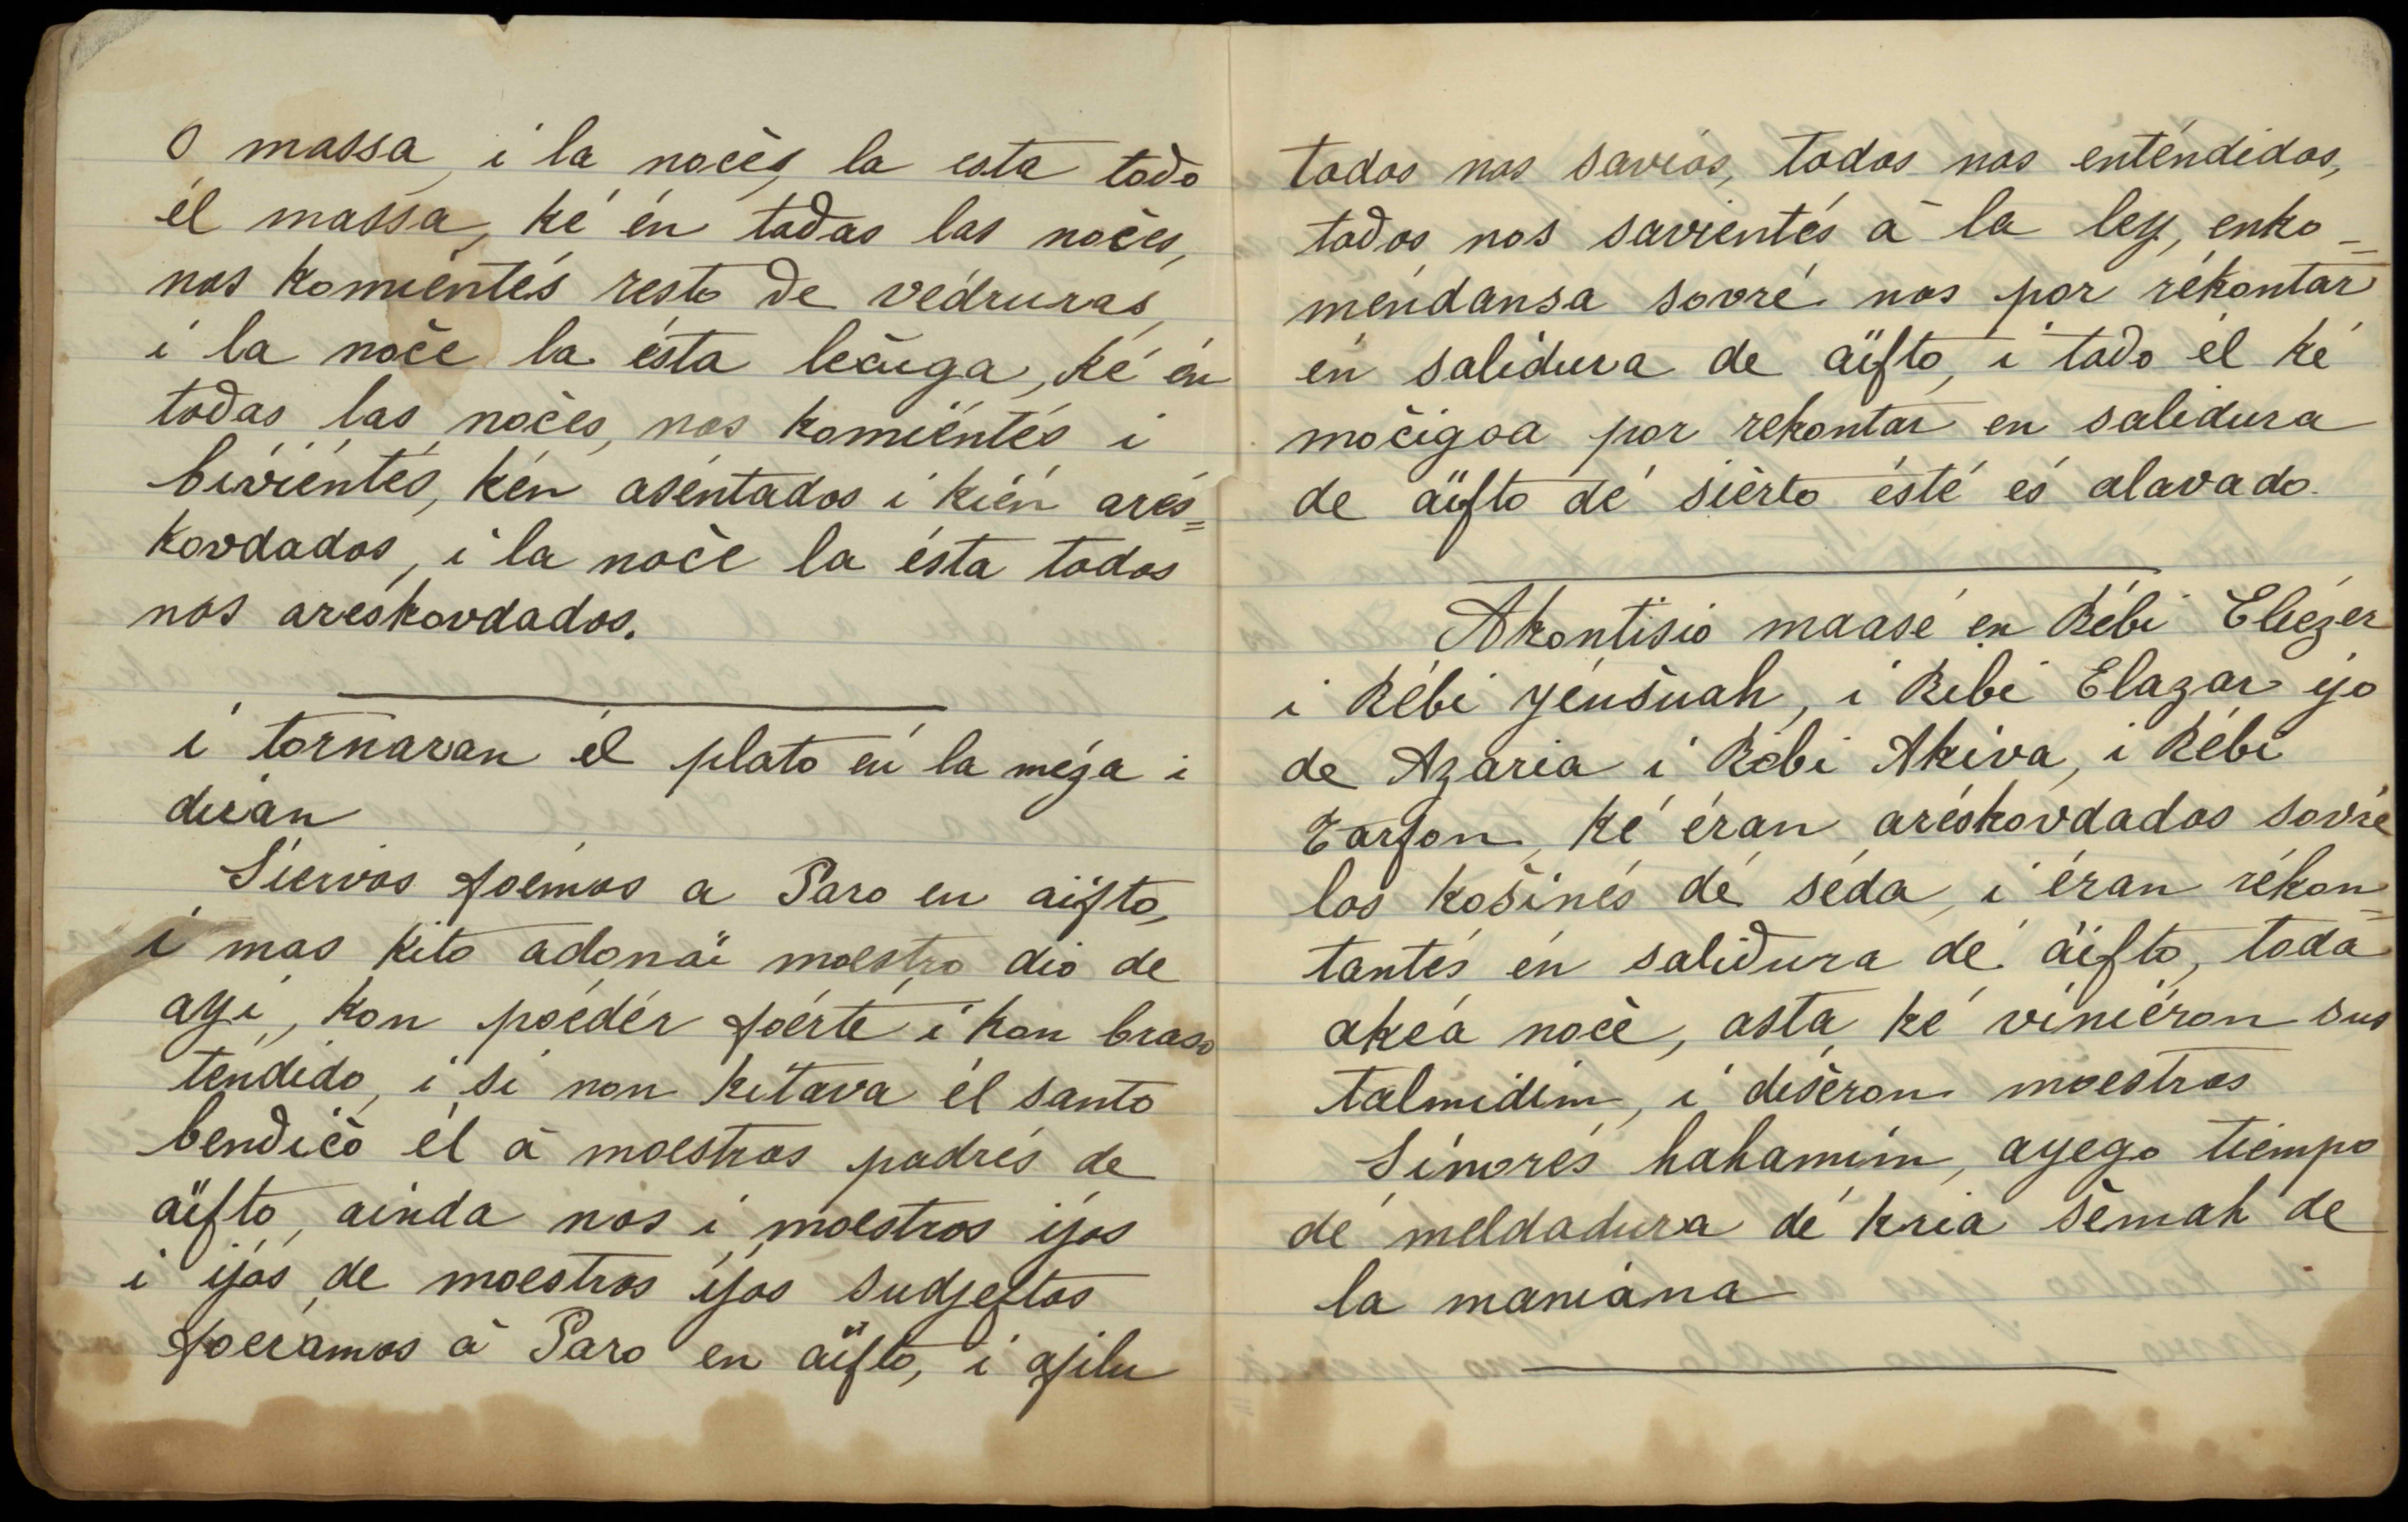 o massa, i la nočės la esta todo
él massa, ké én todas las nočes,
nos komiéntés resto de védruras,
i la noče la ésta lečuga, ké én
todas las nočes, nos komiéntés i
bivientés, kén aséntados i kién arés=
kovdados, i la noče la ésta todos
nos areskovdados.
i tornaran él plato én la méza i
diran
Siervos foemos a Paro en aïfto,
i mas kito adonaï moestro dio de
ayi, kon poédér foérté i kon braso
téndido, i si non kitava él santo
bendičo él à moestros padrés de
aïfto, ainda nos i moestros ijos
i ijos de moestros ijos sudjeftos
foeramos à Paro en aïfto, i afilu
todos nos savios, todos nos enténdidos,
todos nos savientés à la ley, enko=
méndansa sovré nos por rékontar
én salidura de aïfto, i todo él ké
močigoa por rekontar en salidura
de aïfto dé siérto ésté és alavado.
Akontisio maasé en Rébi Eliézer
i Rébi yéušuah, i Ribi Elazar ijo
de Azaria i Rébi Akiva, i Rébi
Tarfon, ké éran aréskovdados sovré
los košinés dé séda, i éran rékon=
tantés én salidura dé aïfto, toda
akéa noče, asta ké viniéron sus
talmidim, i dišéron moestros
Sinorés hahamim, ayego tiempo
dé meldadura dé kria šemah de
la maniana